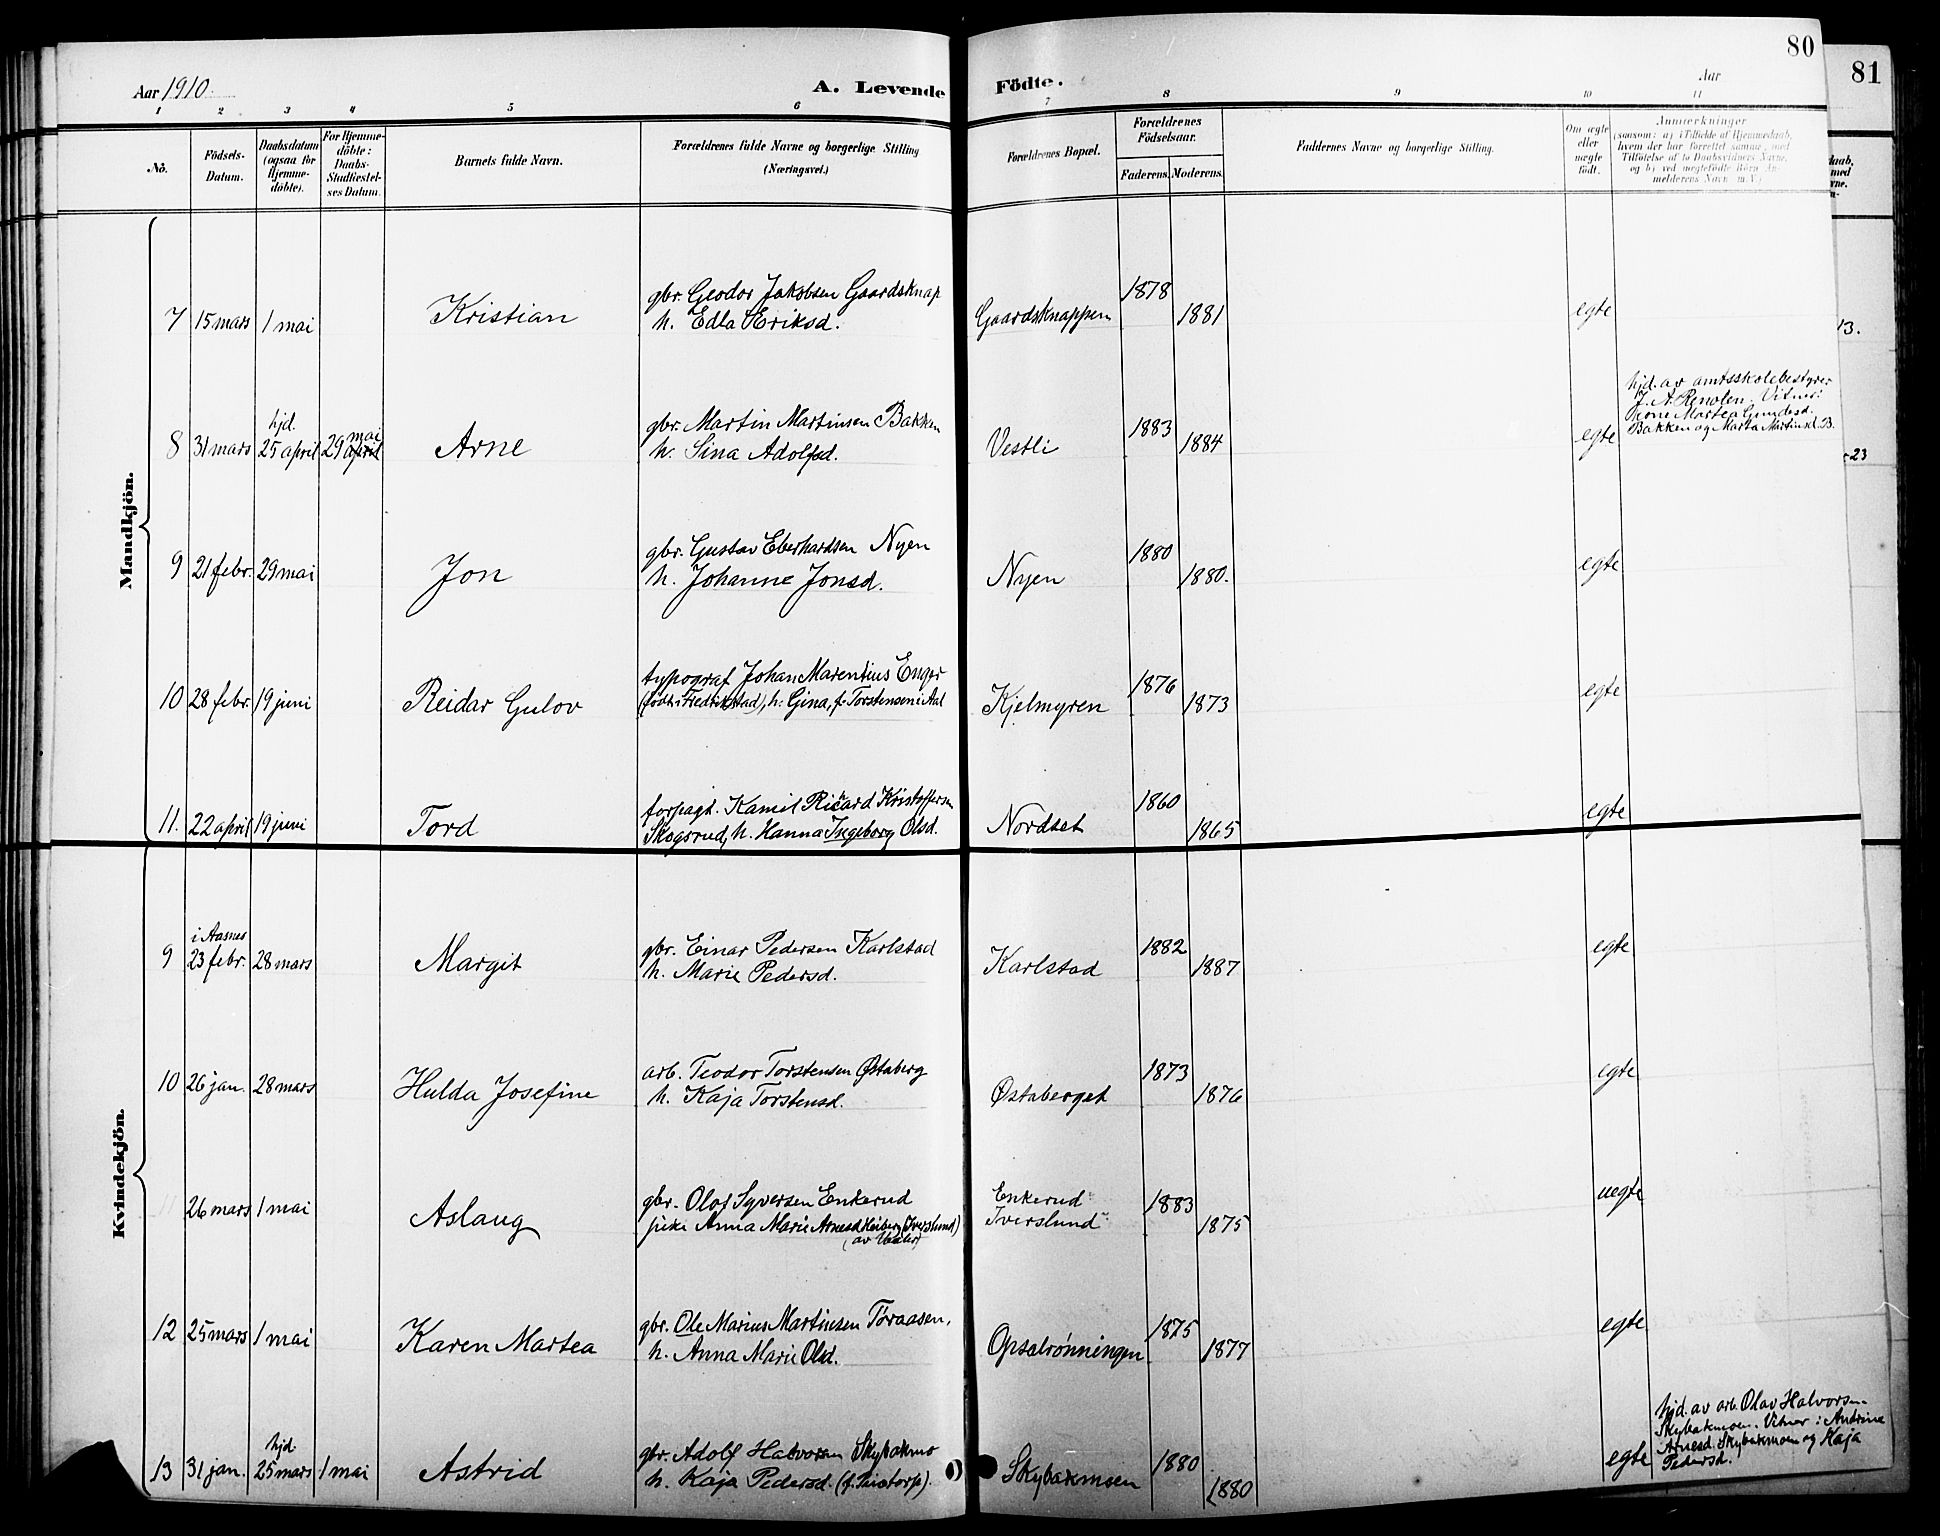 80
81
Aar 1910.
A. Levende Födte.
Aar
1 2 3 4 5 6 7 8 9 10 11
No.
Födsels-
Datum.
Daabsdatum
(ogsaa for
Hjemme-
döbte).
For Hjemme-
döbte:
Daabs-
Stadfæstel-
ses Datum.
Barnets fulde Navn.
Forældrenes fulde Navne og borgerlige Stilling
(Næringsvei.)
Forældrenes Bopæl.
Forældrenes
Födselsaar.
Faderens. Moderens.
Faddernes Navne og borgerlige Stilling.
Om ægte
eller
uægte
födt.
Anmærkninger
(saasom: a) i Tilfælde af Hjemmedaab,
hvem der har forrettet samme, med
Tilföielse af to Daabsvidners Navne,
og b) ved uegtefödte Börn An-
melderens Navn m.V.)
Mandkjön.
7 15 mars 1 mai Kristian
gbr. Geodor Jakobsen Gaardsknap
h. Edla Eriksd.
Gaardsknappen 1878 1881 egte
13.
8 31 mars hjd. 25 april 29 april mai Arne
gbr. Martin Martinsen Bakken
h. Sina Adolfsd.
Vestli 1883 1884 egte
hjd. av amtsskolebestyrer
J. A. Renolen. Vitner:
Martea Gundesd.
Bakken og Marta Martinsd. B.
23
9 21 febr. 29 mai Jon
gbr. Gustav Eberhardsen Nyen
h. Johanne Jonsd.
Nyen 1880 1880. egte
10 28 febr. 19 juni Reidar Gulov
typograf Johan Marentius Enger
(født i Fredrikstad), h. Gina, f. Torstensen i Aal
Kjelmyren 1876 1873 egte
11. 22 april 19 juni Tord
forpagt. Kamil Rikard Kristoffersen
Skogsrud, h. Hanna Ingeborg Olsd.
Nordset 1860 1865 egte
Kvindekjön.
9 i Aasnes 23 febr. 28 mars Margit
gbr. Einar Pedersen Karlstad
h. Marie Pedersd.
Karlstad 1882 1887 egte
10 26 jan. 28 mars Hulda Josefine
arb. Teodor Torstensen Østaberg
h. Kaja Torstensd.
Østaberget 1873 1876 egte
11 26 mars 1 mai Aslaug
gbr. Olof Syversen Enkerud
pike Anna Marie Arnesd. (Iverslund)
Enkerud
Iverslund 1883 1875 uegte
12 25 mars 1 mai Karen Martea
gbr. Ole Marius Martinsen Toraasen,
h. Anna Marie Olsd.
Opsalrønningen 1875 1877 egte
13 31 jan. hjd. 25 mars 1 mai Astrid
gbr. Adolf Halvorsen Skybakmo
h. Kaja Pedersd.
Skybakmoen 1880 1880 egte
hjd. av arb. Olav Halvorsen
Skybakmoen. Vitner: Andrine
Arnesd. Skybakmoen og Kaja
Pedersd.